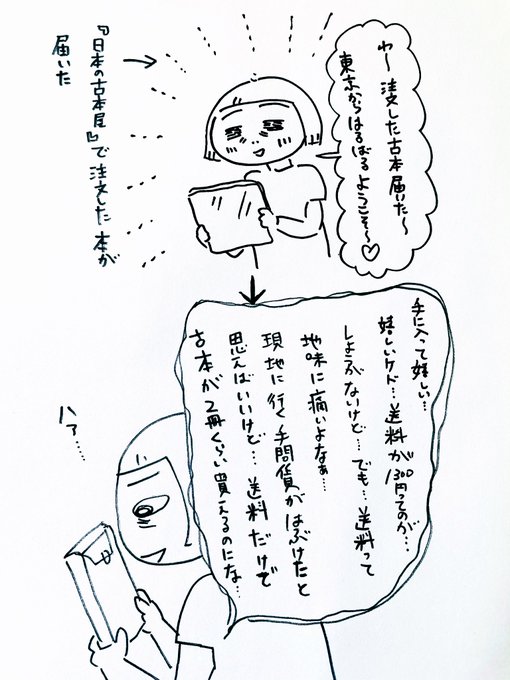 わ〜 注文した古本届いた〜
東京からはるばるようこそ〜♡
『日本の古本屋』で注文した本が
届いた
手に入って嬉しい…
嬉しいケド…送料が1300円ってのが…
しょうがないけど…でも…送料って
地味に痛いよなぁ…
現地に行く手間賃がはぶけたと
思えばいいけど…送料だけで
古本が2冊くらい買えるのにな…
ハァ……